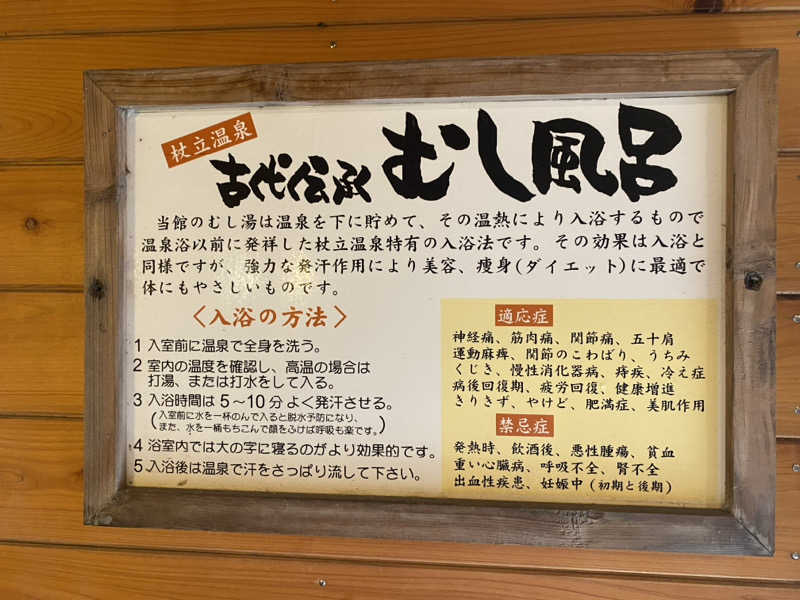 杖立温泉
古代伝承 むし風呂
当館のむし湯は温泉を下に貯めて、その温熱により入浴するもので
温泉浴以前に発祥した杖立温泉特有の入浴法です。その効果は入浴と
同様ですが、強力な発汗作用により美容、痩身(ダイエット)に最適で
体にもやさしいものです。
〈入浴の方法〉
1 入室前に温泉で全身を洗う。
2 室内の温度を確認し、高温の場合は
打湯、または打水をして入る。
3 入浴時間は5～10分よく発汗させる。
(入室前に水を一杯のんで入ると脱水予防になり、
また、水を一桶もちこんで顔をふけば呼吸も楽です。)
4 浴室内では大の字に寝るのがより効果的です。
5 入浴後は温泉で汗をさっぱり流して下さい。
適応症
神経痛、筋肉痛、関節痛、五十肩
運動麻痺、関節のこわばり、うちみ
くじき、慢性消化器病、痔疾、冷え症
病後回復期、疲労回復、健康増進
きりきず、やけど、肥満症、美肌作用
禁忌症
発熱時、飲酒後、悪性腫瘍、貧血
重い心臓病、呼吸不全、腎不全
出血性疾患、妊娠中(初期と後期)